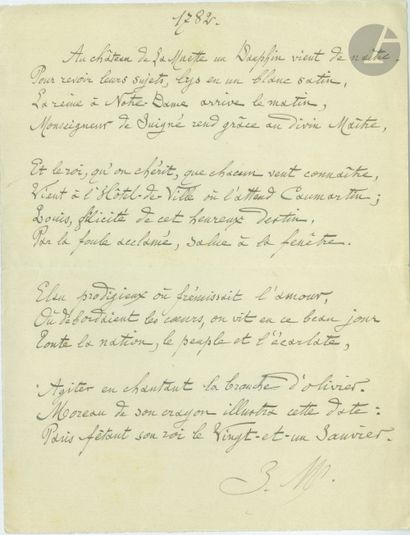 1782.
Au château de La Muette un Dauphin vient de naître.
Pour revoir leurs sujets, lys en un blanc satin,
La reine à Notre-Dame arrive le matin,
Monseigneur de Juigné rend grâce au divin Maître,
Et le roi, qu'on chérit, que chacun veut connaître,
Vient à l'Hôtel-de-Ville où l'attend Caumartin;
Louis, félicité de cet heureux destin,
Par la foule acclamé, salue à la fenêtre.
Elan prodigieux où frémissait l'amour,
Où débordaient les cœurs, on vit en ce beau jour
Toute la nation, le peuple et l'écarlate,
Agiter en chantant la branche d'olivier
Moreau de son crayon illustra cette date:
Paris fêtant son roi le Vingt-et-un Janvier.